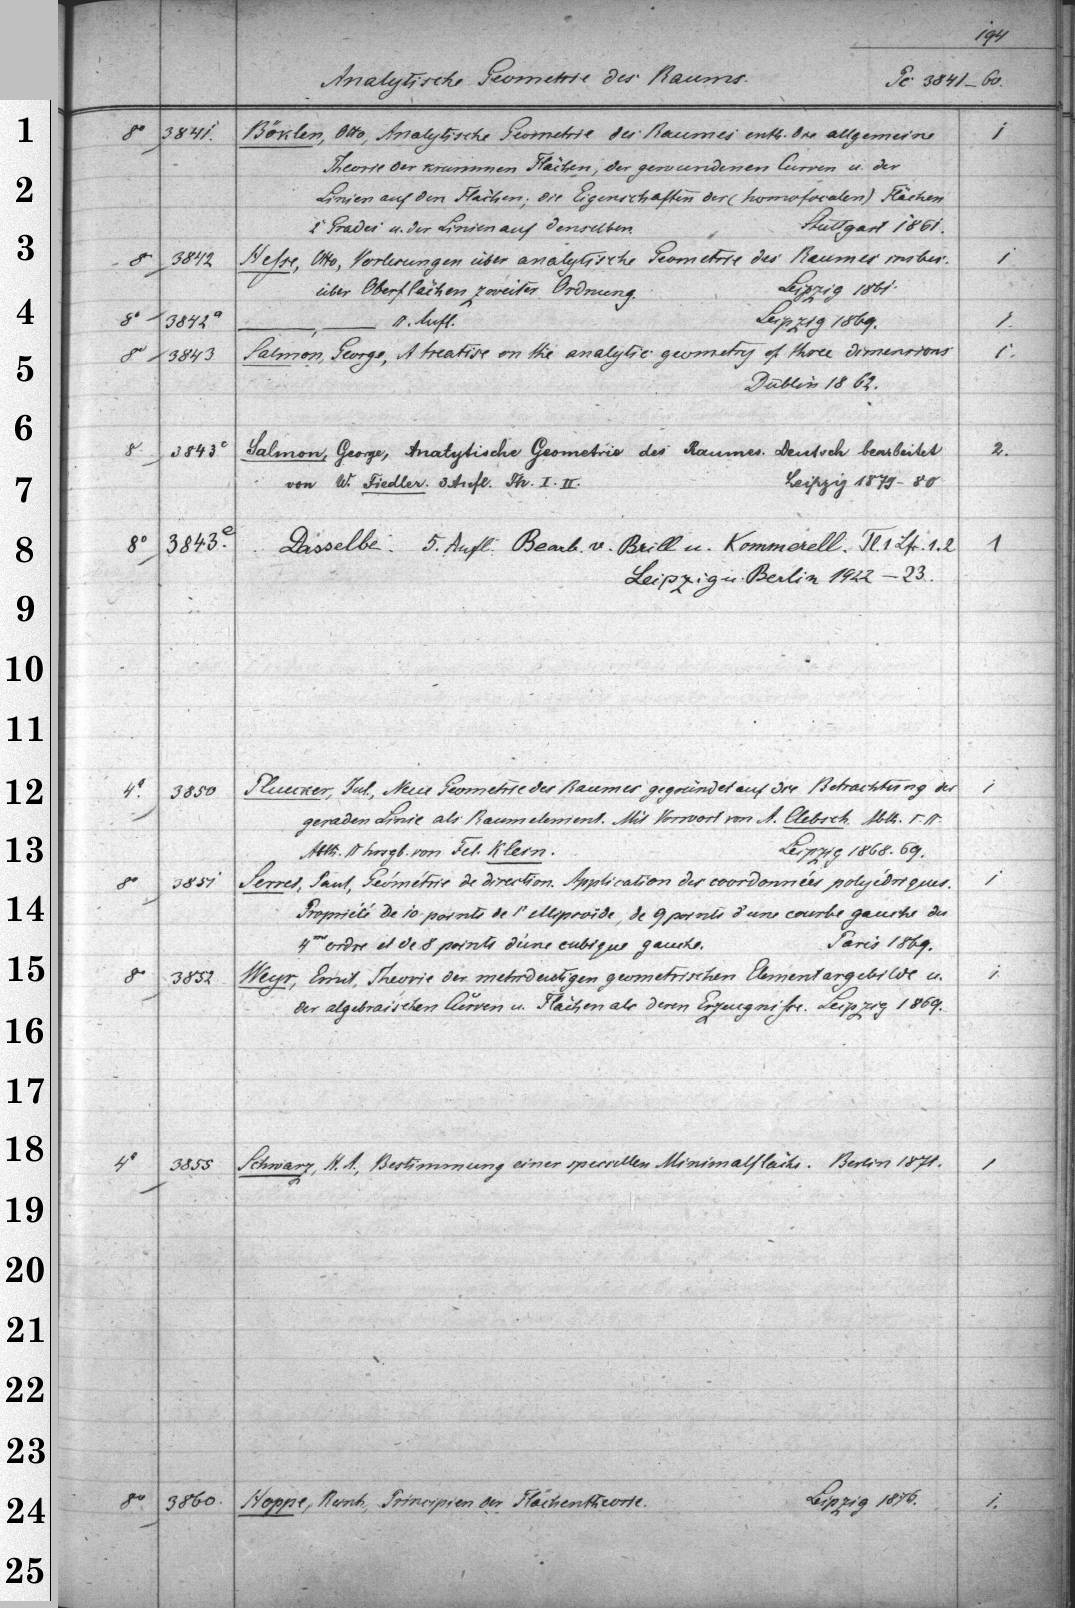 194
Analytische Geometrie des Raums. Pc 3841–60.
1
8° 3841. Böklen, Otto, Analytische Geometrie des Raumes enth. die allgemeine 1
Theorie der krummen Flächen, der gewundenen Curven u. der
2
Linien auf den Flächen; die Eigenschaften der (homofocalen) Flächen
2 Grades u. der Linien auf denselben. Stuttgart 1861.
3
8° 3842 Hesse, Otto, Vorlesungen über analytische Geometrie des Raumes insbes. 1
über Oberflächen zweiter Ordnung. Leipzig 1861.
4
8° 3842a ———, ——— II. Aufl. Leipzig 1869. 1.
5
8° 3843 Salmon, George, A treatise on the analytic geometry of three dimensions 1.
Dublin 1862.
6
8° 3843c Salmon, George, Analytische Geometrie des Raumes. Deutsch bearbeitet 2.
7
von W. Fiedler. 3 Aufl. Th. I. II. Leipzig 1879–80
8
8° 3843.e Dasselbe. 5. Aufl. Bearb. v. Brill u. Kommerell. Tl. 1 Lfr. 1.2 1
Leipzig u. Berlin 1922–23.
9
10
11
12
4° 3850 Pluecker, Jul., Neue Geometrie des Raumes gegründet auf die Betrachtung der 1
geraden Linie als Raumelement. Mit Vorwort von A. Clebsch. Abth. I. II.
13
Abth. II hrsgb. von Fel. Klein. Leipzig 1868. 69.
8° 3851 Serret, Paul, Géométrie de direction. Application des coordonnées polyédriques. 1
14
Propriété de 10 points de l'ellipsoïde, de 9 points d'une courbe gauche du
4me ordre et de 8 points d'une cubique gauche. Paris 1869.
15
8° 3852 Weyr, Emil, Theorie der mehrdeutigen geometrischen Elementargebilde u. 1.
der algebraischen Curven u. Flächen als deren Erzeugnisse. Leipzig 1869.
16
17
18
4° 3855 Schwarz, H. A., Bestimmung einer speciellen Minimalfläche. Berlin 1871. 1
19
20
21
22
23
24
8° 3860. Hoppe, Reinh., Principien der Flächentheorie. Leipzig 1876. 1.
25